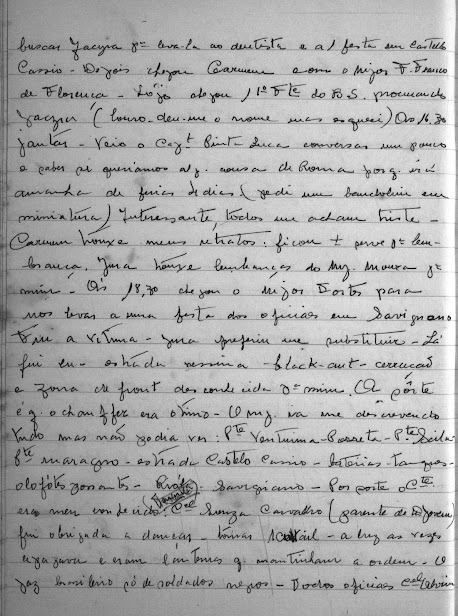 buscar Jacyra pª leva-la ao dentista e a 1 festa em Castello
Cassio - Depois chegou Carmem com o Major F. Franco
de Florença - Logo chegou 1 1º Tte do B.S. procurando
Jacyra (louro - deu-me o nome mas esqueci) Ás 16,30
jantar - Veio o Capt Pinta Luca conversar um pouco
e saber si queriamos alg. cousa de Roma porq. irá
amanhã de ferias 5 dias (pedi um bandolim em
miniatura) Interessante, todos me acham triste -
Carmem trouxe meus retratos. ficou ± serve pª lem-
brança. Jura trouxe lembranças do Maj. Moura pª
mim - Ás 18,30 chegou o Major Fortes para
nos levar a uma festa dos oficiaes em Savignano
Era a Vetura - Jura preferiu me substituir - Lá
fui eu - estrada pessima - black-out - cerração
e zona de front desconhecida pª mim. (A sorte
é q. o chauffer era otimo - O maj. ia me descrevendo
tudo mas não podia ver: Pte Venturina - Porreta - Pte Seila
Pte maragno - estrada Castelo Cassio - baterias - tanques -
olofótes possantes - Savignano - Por sorte o Cte.
era meu conhecido: Cel Souza Carvalho (parente de Djanira)
fui obrigada a dançar - tomar 1 cocktail - a luz as vezes
apagava e eram lanternas q. mantinham a ordem - O
jaz brasileiro só de soldados negros - Todos oficiaes